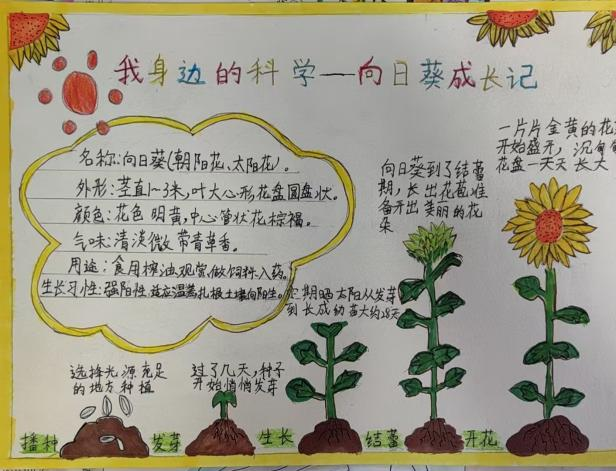 我身边的科学——向日葵成长记
名称:向日葵(朝阳花、太阳花)。
外形:茎直1~3米,叶大心形花盘圆盘状。
颜色:花色明黄,中心管状花棕褐。
气味:清淡微带青草香。
用途:食用榨油,观赏,做饲料入药。
生长习性:强阳性,适应温暖扎根土壤向阳生。
选择光源充足
的地方种植
过了几天,种子
开始悄悄发芽
定期晒太阳从发芽
到长成幼苗大约28天
向日葵到了结蕾
期,长出花苞准
备开出美丽的花
朵
一片片金黄的花
开始盛开,沉甸甸
花盘一天天长大
播种
发芽
生长
结蕾
开花